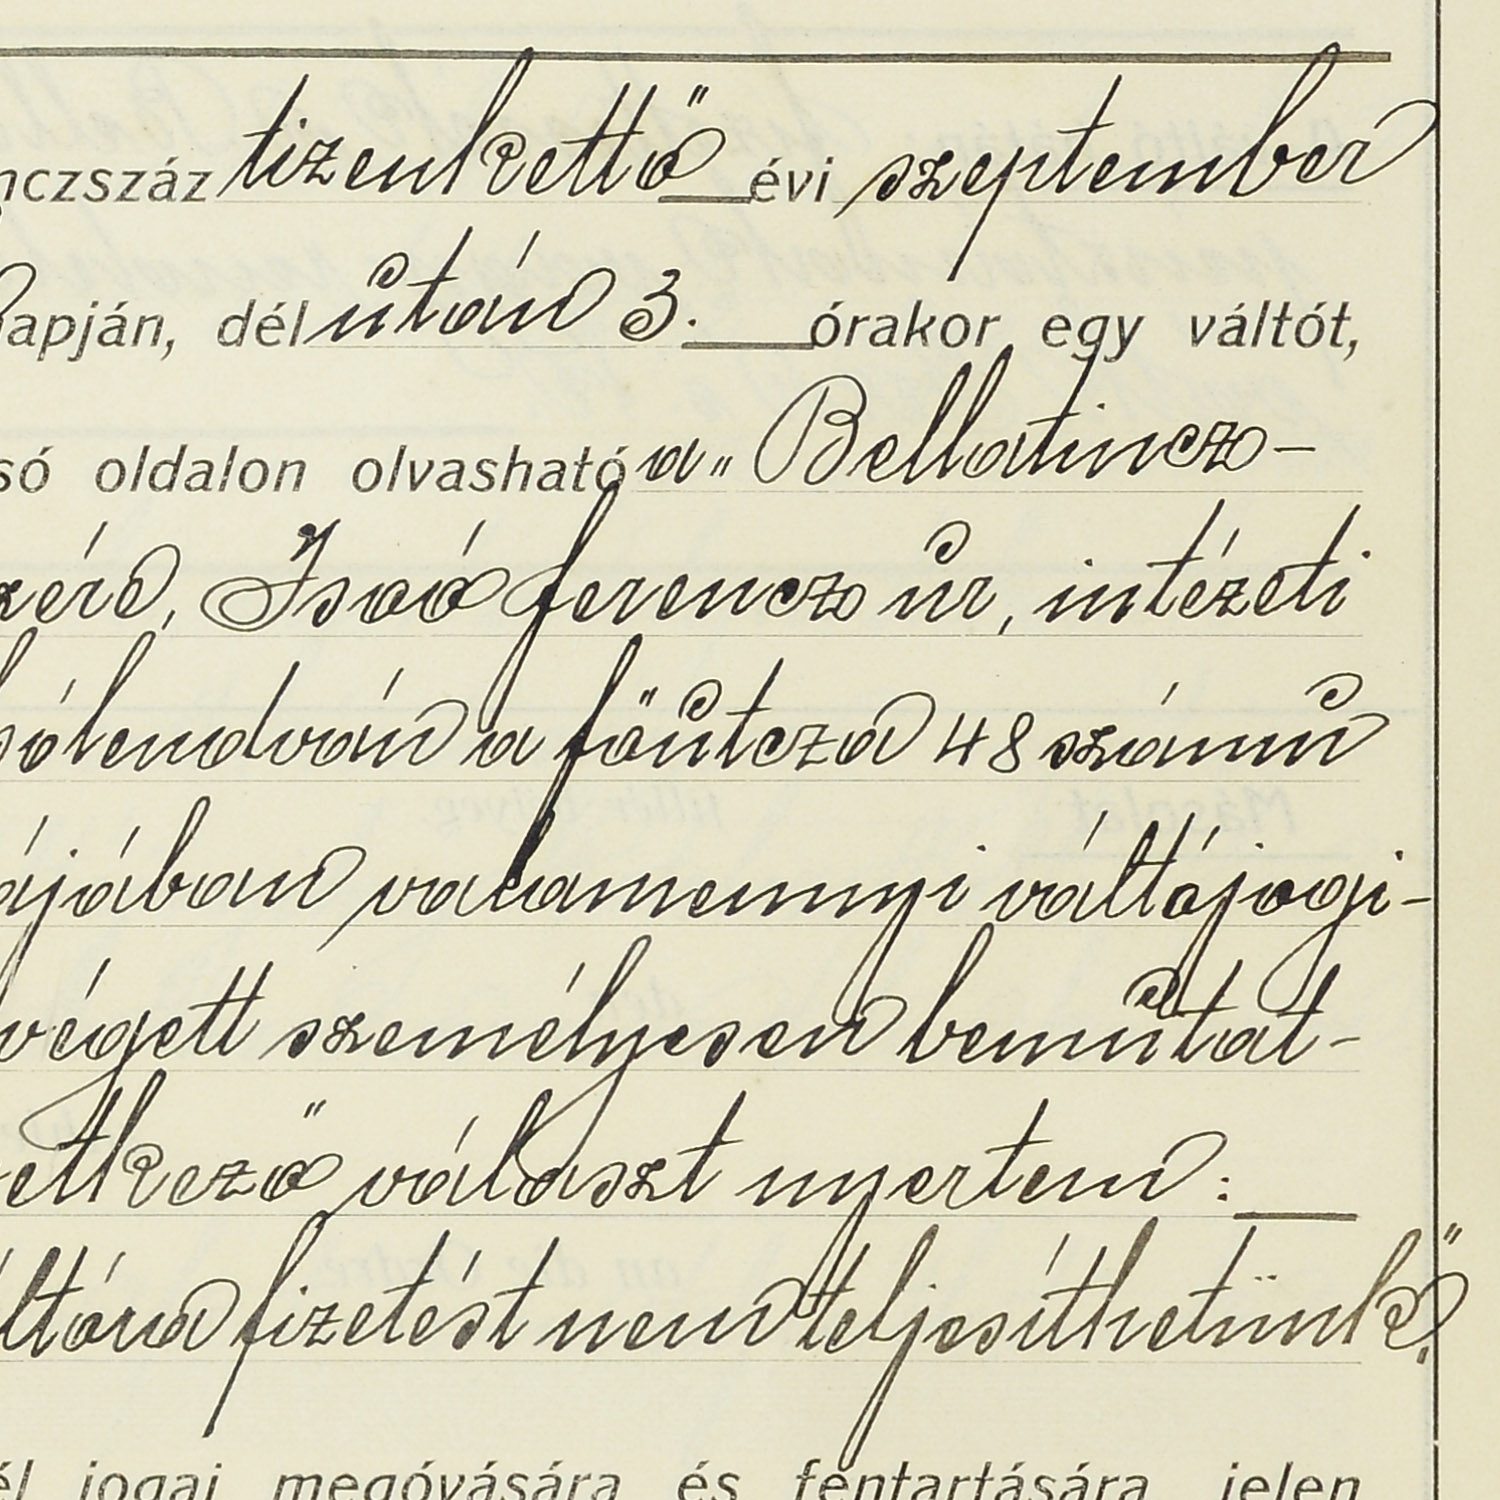 nczszáz tizenkettő évi szeptember
apján, dél után 3. órakor egy váltót,
só oldalon olvasható a „Bellatincz-
zérd, Isoó ferencz úr, intézeti
sólendván a főutcza 48 számú
ájában valamennyi váltójogi-
végett személyesen bemutat-
etkező választ nyertem:
ltóra fizetést nem teljesíthetünk."
él jogai megóvására és fentartására jelen